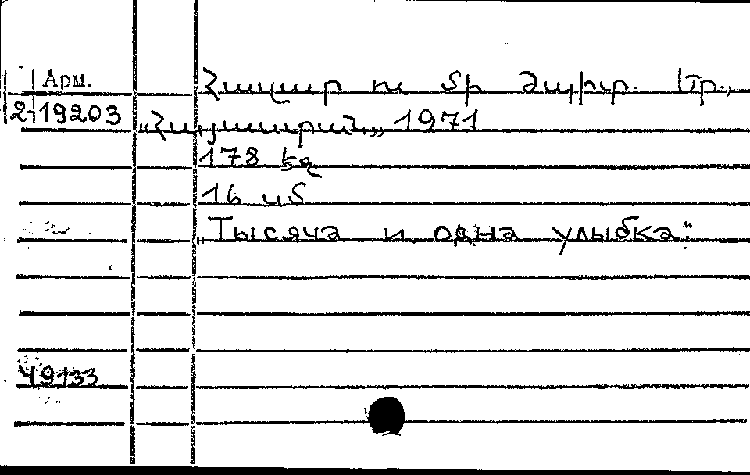 Арм.
Հազար ու մի ժպիտ. Եր.,
2-19203
«Հայաստան» 1971
178 էջ
16 սմ
"Тысяча и одна улыбка"
49133